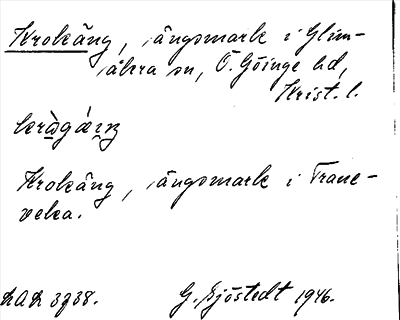 Krokäng, ängsmark i Glim-
åkra sn, Ö. Göinge hd,
Krist. l.
Krokäng, ängsmark i Trane-
veka.
G. Sjöstedt 1946.